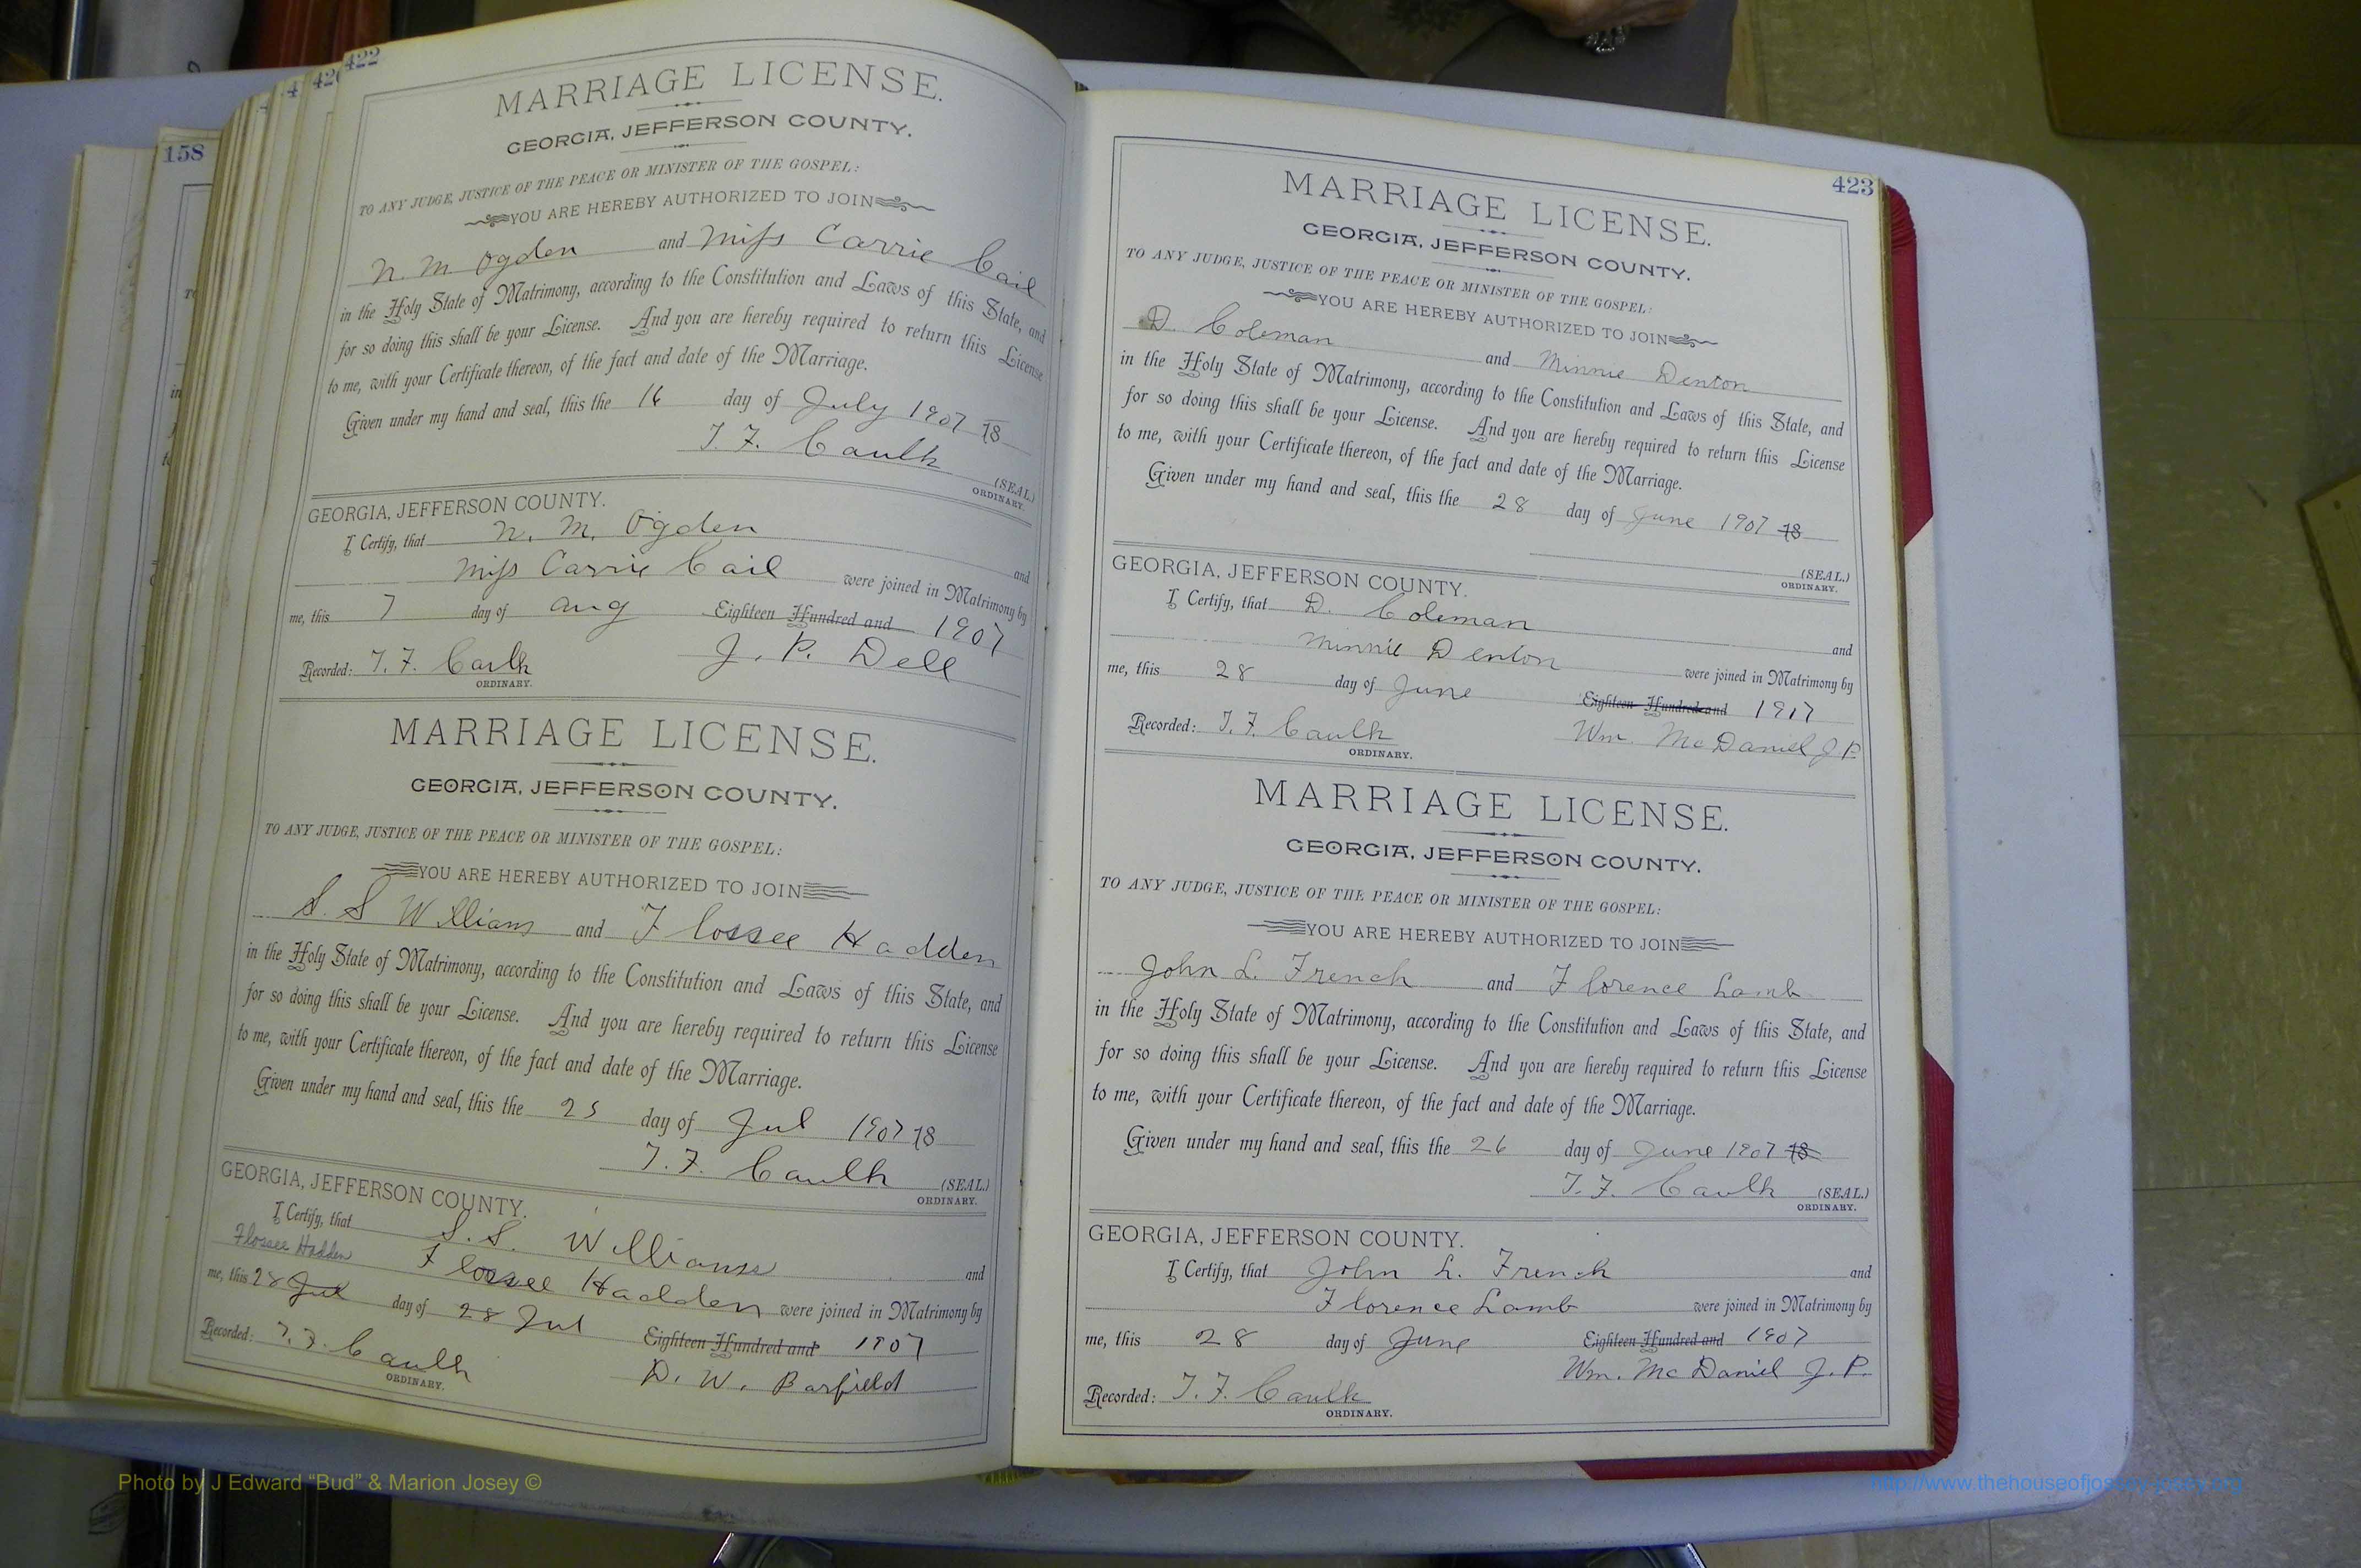 422
MARRIAGE LICENSE.
GEORGIA, JEFFERSON COUNTY.
TO ANY JUDGE, JUSTICE OF THE PEACE OR MINISTER OF THE GOSPEL:
YOU ARE HEREBY AUTHORIZED TO JOIN
N. M. Ogden and Miss Carrie Cail
in the Holy State of Matrimony, according to the Constitution and Laws of this State, and
for so doing this shall be your License. And you are hereby required to return this License
to me, with your Certificate thereon, of the fact and date of the Marriage.
Given under my hand and seal, this the 16 day of July 1907 18
T. F. Caulk
(SEAL.)
ORDINARY.
GEORGIA, JEFFERSON COUNTY.
I Certify, that N. M. Ogden and
Miss Carrie Cail were joined in Matrimony by
me, this 7 day of Aug Eighteen Hundred and 1907
Recorded: T. F. Caulk J. P. Dell
ORDINARY.
MARRIAGE LICENSE.
GEORGIA, JEFFERSON COUNTY.
TO ANY JUDGE, JUSTICE OF THE PEACE OR MINISTER OF THE GOSPEL:
YOU ARE HEREBY AUTHORIZED TO JOIN
S. S Williams and Flossee Hadden
in the Holy State of Matrimony, according to the Constitution and Laws of this State, and
for so doing this shall be your License. And you are hereby required to return this License
to me, with your Certificate thereon, of the fact and date of the Marriage.
Given under my hand and seal, this the 25 day of Jul 1907 18
T. F. Caulk (SEAL.)
ORDINARY.
GEORGIA, JEFFERSON COUNTY.
I Certify, that S. S. Williams and
Flossee Hadden Flossee Hadden were joined in Matrimony by
me, this 28 Jul day of 28 Jul Eighteen Hundred and 1907
Recorded: T. F. Caulk D. W. Barfield
ORDINARY.
423
MARRIAGE LICENSE.
GEORGIA, JEFFERSON COUNTY.
TO ANY JUDGE, JUSTICE OF THE PEACE OR MINISTER OF THE GOSPEL:
YOU ARE HEREBY AUTHORIZED TO JOIN
D. Coleman and Minnie Denton
in the Holy State of Matrimony, according to the Constitution and Laws of this State, and
for so doing this shall be your License. And you are hereby required to return this License
to me, with your Certificate thereon, of the fact and date of the Marriage.
Given under my hand and seal, this the 28 day of June 1907 18
(SEAL.)
ORDINARY.
GEORGIA, JEFFERSON COUNTY.
I Certify, that D. Coleman and
Minnie Denton were joined in Matrimony by
me, this 28 day of June Eighteen Hundred and 1917
Recorded: T. F. Caulk Wm. McDaniel J P.
ORDINARY.
MARRIAGE LICENSE.
GEORGIA, JEFFERSON COUNTY.
TO ANY JUDGE, JUSTICE OF THE PEACE OR MINISTER OF THE GOSPEL:
YOU ARE HEREBY AUTHORIZED TO JOIN
John L. French and Florence Lamb
in the Holy State of Matrimony, according to the Constitution and Laws of this State, and
for so doing this shall be your License. And you are hereby required to return this License
to me, with your Certificate thereon, of the fact and date of the Marriage.
Given under my hand and seal, this the 26 day of June 1907 18
T. F. Caulk (SEAL.)
ORDINARY.
GEORGIA, JEFFERSON COUNTY.
I Certify, that John L. French and
Florence Lamb were joined in Matrimony by
me, this 28 day of June Eighteen Hundred and 1907
Recorded: T. F. Caulk Wm. McDaniel J. P.
ORDINARY.
158
Photo by J Edward “Bud” & Marion Josey ©